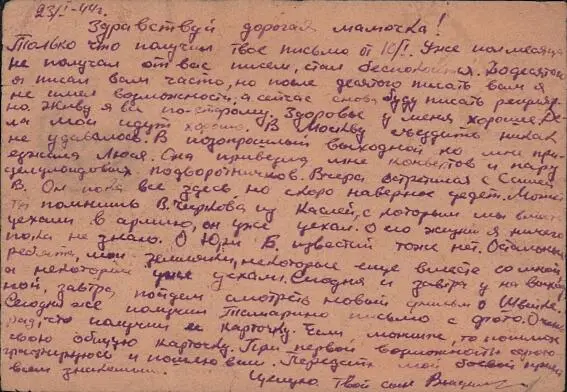 23/I-44г.
Здравствуй дорогая мамочка!
Только что получил твое письмо от 10/I. Уже полмесяца
не получал от вас писем, стал беспокоиться. До десятого
я писал вам часто, но после десятого писать вам я
не имел возможности, а сейчас снова буду писать регуляр-
но. Живу я все по-старому. Здоровье у меня хорошее. Де-
ла мои идут хорошо. В Москву съездить никак
не удавалось. В позапрошлый выходной ко мне при-
езжала Люся. Она привезла мне конвертов и пару
целулоидовых подворотничков. Вчера встретился с Сашей
В. Он пока все здесь но скоро наверное уедет. Может
ты помнишь В. Чиркова из Каслей, с которым мы вместе
уехали в армию, он уже уехал. О его жизни я ничего
пока не знаю. О Юре Б. известий тоже нет. Остальные
ребята, мои земляки, некоторые еще вместе со мной
а некоторые уже уехали. Сегодня и завтра у нас выход-
ной, завтра пойдем смотреть новый фильм о Швейке.
Сегодня же получил Тамарино письмо с фото. Очень
рад, что получил ее карточку. Если можете, то пошлите
свою общую карточку. При первой возможности сфото-
графируюсь и пошлю вам. Передайте мой боевой привет
всем знакомым.
Целую. Твой сын